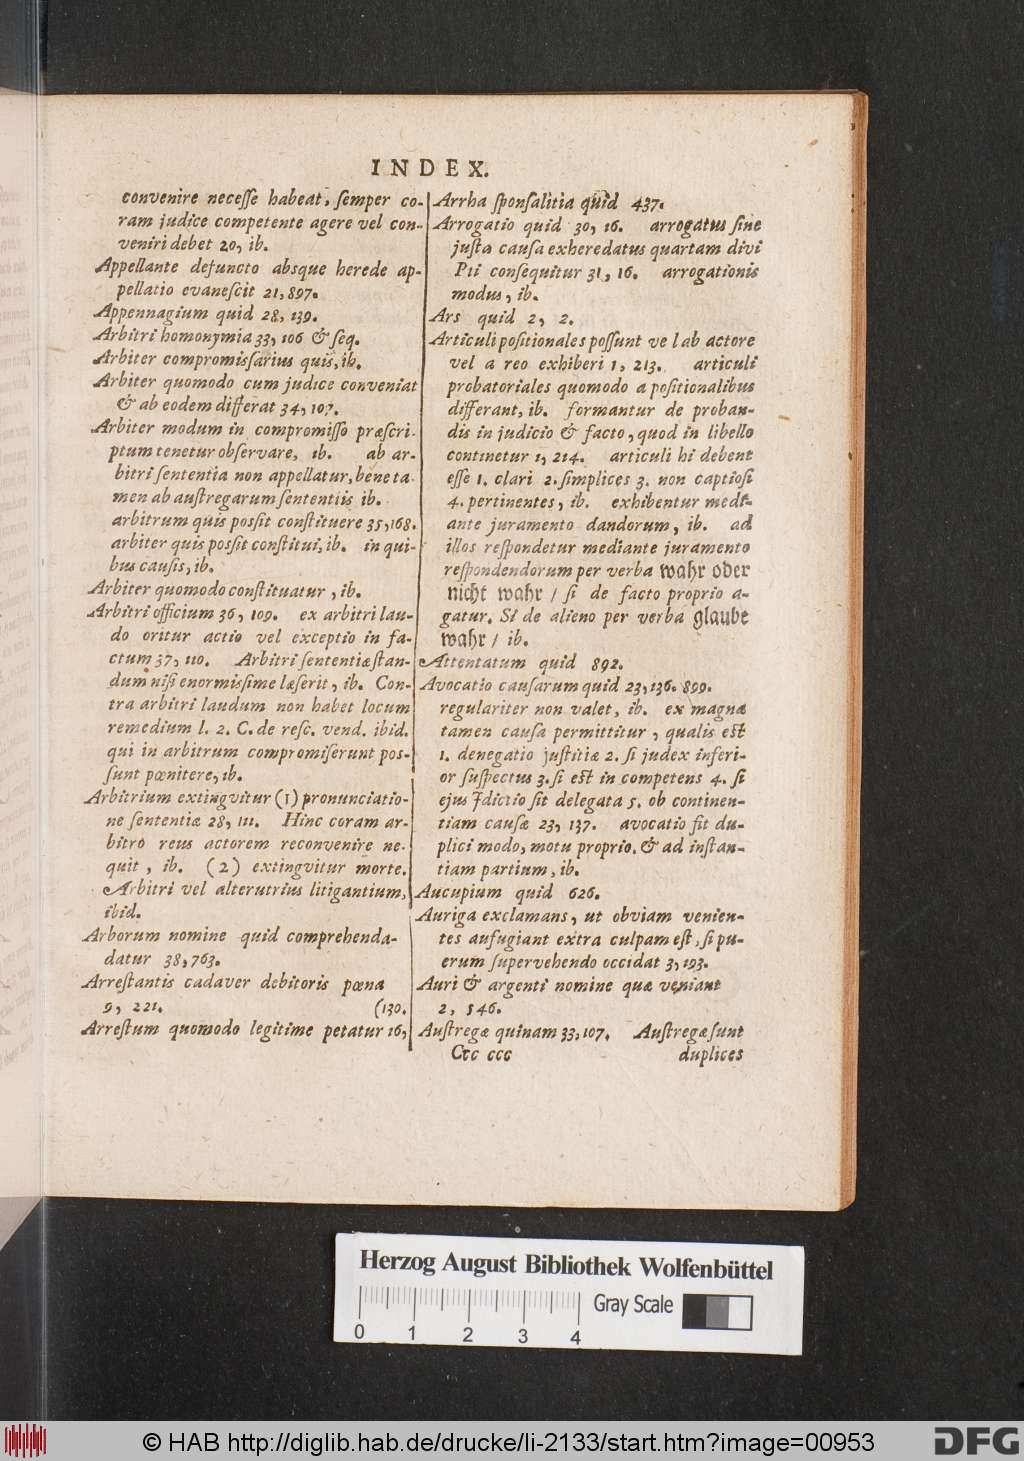 INDEX.
convenire necesse habeat, semper co-
ram judice competente agere vel con-
veniri debet 20, ib.
Appellante defuncto absque herede ap-
pellatio evanescit 21, 897.
Appennagium quid 28, 139.
Arbitri homonymia 33, 106 & seq.
Arbiter compromissarius quis, ib.
Arbiter quomodo cum judice conveniat
& ab eodem differat 34, 107.
Arbiter modum in compromisso præscri-
ptum tenetur observare, ib. ab ar-
bitri sententia non appellatur, bene ta-
men ab austregarum sententiis ib.
arbitrum quis possit constituere 35, 168.
arbiter quis possit constitui, ib. in qui-
bus causis, ib.
Arbiter quomodo constituatur, ib.
Arbitri officium 36, 109. ex arbitri lau-
do oritur actio vel exceptio in fa-
ctum 37, 110. Arbitri sententiæ stan-
dum nisi enormissime læserit, ib. Con-
tra arbitri laudum non habet locum
remedium l. 2. C. de resc. vend. ibid.
qui in arbitrum compromiserunt pos-
sunt pœnitere, ib.
Arbitrium extingvitur (1) pronunciatio-
ne sententiæ 28, 111. Hinc coram ar-
bitro reus actorem reconvenire ne-
quit, ib. (2) extingvitur morte.
Arbitri vel alterutrius litigantium,
ibid.
Arborum nomine quid comprehenda-
datur 38, 763.
Arrestantis cadaver debitoris pœna
9, 221. (130.
Arrestum quomodo legitime petatur 16,
Arrha sponsalitia quid 437.
Arrogatio quid 30, 16. arrogatus sine
justa causa exheredatus quartam divi
Pii consequitur 31, 16. arrogationis
modus, ib.
Ars quid 2, 2.
Articuli positionales possunt vel ab actore
vel a reo exhiberi 1, 213. articuli
probatoriales quomodo a positionalibus
differant, ib. formantur de proban-
dis in judicio & facto, quod in libello
continetur 1, 214. articuli hi debent
esse 1. clari 2. simplices 3. non captiosi
4. pertinentes, ib. exhibentur medi-
ante juramento dandorum, ib. ad
illos respondetur mediante juramento
respondendorum per verba wahr oder
nicht wahr / si de facto proprio a-
gatur. Si de alieno per verba glaube
wahr / ib.
Attentatum quid 892.
Avocatio causarum quid 23, 136. 899.
regulariter non valet, ib. ex magna
tamen causa permittitur, qualis est
1. denegatio justitiæ 2. si judex inferi-
or suspectus 3. si est in competens 4. si
ejus Jdictio sit delegata 5. ob continen-
tiam causæ 23, 137. avocatio fit du-
plici modo, motu proprio. & ad instan-
tiam partium, ib.
Aucupium quid 626.
Auriga exclamans, ut obviam venien-
tes aufugiant extra culpam est, si pu-
erum supervehendo occidat 3, 193.
Auri & argenti nomine quæ veniant
2, 546.
Austregæ quinam 33, 107. Austregæ sunt
Ccc ccc duplices
Herzog August Bibliothek Wolfenbüttel
Gray Scale
0 1 2 3 4
© HAB http://diglib.hab.de/drucke/li-2133/start.htm?image=00953
DFG